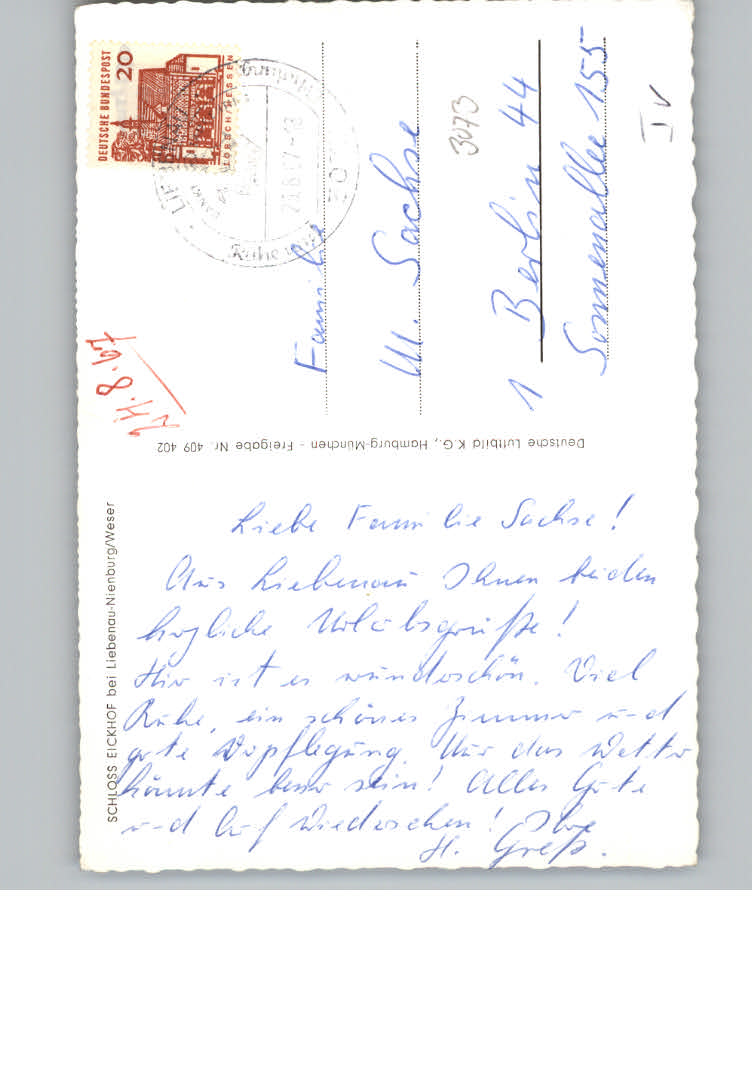 DEUTSCHE BUNDESPOST
20
LORSCH/HESSEN
24.8.67
3073
IV
Familie
W. Sachse
1 Berlin 44
Sonnenallee 155
Deutsche Luftbild K.G., Hamburg-München - Freigabe Nr. 409 402
SCHLOSS EICKHOF bei Liebenau-Nienburg/Weser
Liebe Familie Sachse!
Aus Liebenau Ihnen beiden
herzliche Urlaubsgrüße!
Hier ist es wunderschön. Viel
Ruhe, ein schönes Zimmer und
gute Verpflegung. Nur das Wetter
könnte besser sein! Alles Gute
und Auf Wiedersehen! Ihre
H. Greß.